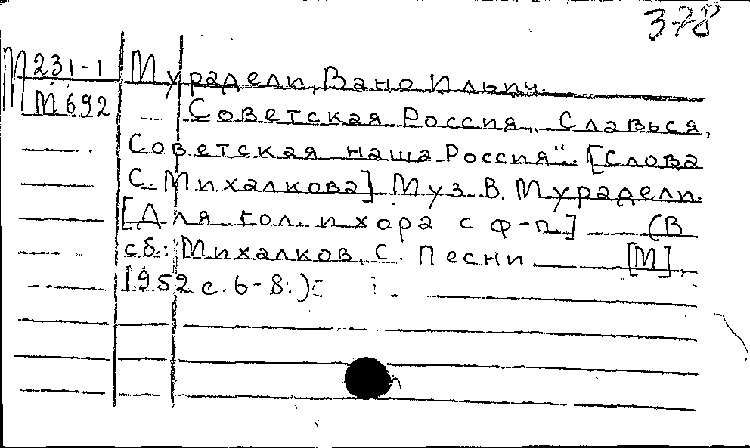 378
М231-1 Мурадели, Вано Ильич.
М692 Советская Россия „Славься,
Советская наша Россия". [Слова
С. Михалкова] Муз. В. Мурадели.
[Для гол. и хора с ф-п.] (В
сб.: Михалков, С. Песни. [М],
1952 с. 6-8.)